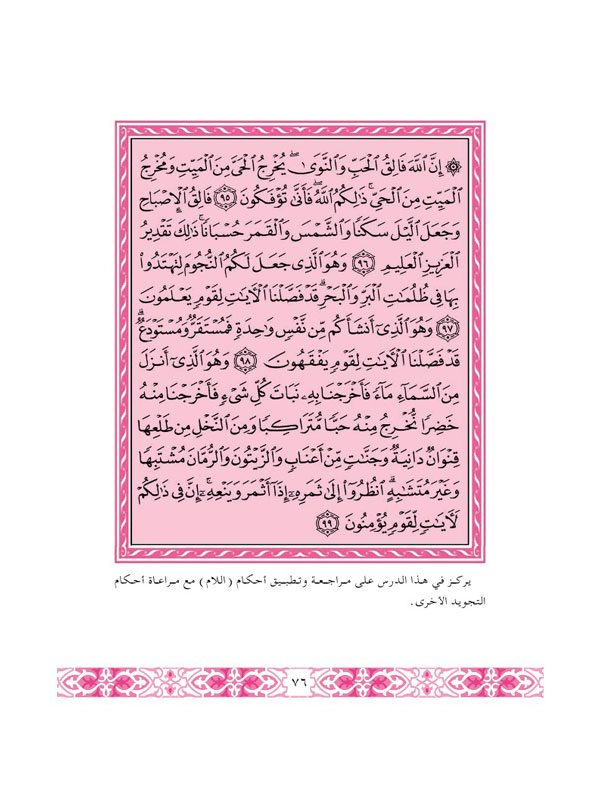 ۞ إِنَّ ٱللَّهَ فَالِقُ ٱلْحَبِّ وَٱلنَّوَىٰۖ يُخْرِجُ ٱلْحَيَّ مِنَ ٱلْمَيِّتِ وَمُخْرِجُ
ٱلْمَيِّتِ مِنَ ٱلْحَيِّۚ ذَٰلِكُمُ ٱللَّهُۖ فَأَنَّىٰ تُؤْفَكُونَ ٩٥ فَالِقُ ٱلْإِصْبَاحِ
وَجَعَلَ ٱلَّيْلَ سَكَنًا وَٱلشَّمْسَ وَٱلْقَمَرَ حُسْبَانًاۚ ذَٰلِكَ تَقْدِيرُ
ٱلْعَزِيزِ ٱلْعَلِيمِ ٩٦ وَهُوَ ٱلَّذِي جَعَلَ لَكُمُ ٱلنُّجُومَ لِتَهْتَدُوا۟
بِهَا فِي ظُلُمَٰتِ ٱلْبَرِّ وَٱلْبَحْرِۗ قَدْ فَصَّلْنَا ٱلْآيَٰتِ لِقَوْمٍ يَعْلَمُونَ
٩٧ وَهُوَ ٱلَّذِيٓ أَنشَأَكُم مِّن نَّفْسٍ وَٰحِدَةٍ فَمُسْتَقَرٌّ وَمُسْتَوْدَعٌۗ
قَدْ فَصَّلْنَا ٱلْآيَٰتِ لِقَوْمٍ يَفْقَهُونَ ٩٨ وَهُوَ ٱلَّذِيٓ أَنزَلَ
مِنَ ٱلسَّمَآءِ مَآءً فَأَخْرَجْنَا بِهِۦ نَبَاتَ كُلِّ شَيْءٍ فَأَخْرَجْنَا مِنْهُ
خَضِرًا نُّخْرِجُ مِنْهُ حَبًّا مُّتَرَاكِبًا وَمِنَ ٱلنَّخْلِ مِن طَلْعِهَا
قِنْوَانٌ دَانِيَةٌ وَجَنَّٰتٍ مِّنْ أَعْنَابٍ وَٱلزَّيْتُونَ وَٱلرُّمَّانَ مُشْتَبِهًا
وَغَيْرَ مُتَشَٰبِهٍۗ ٱنظُرُوٓا۟ إِلَىٰ ثَمَرِهِۦٓ إِذَآ أَثْمَرَ وَيَنْعِهِۦٓۚ إِنَّ فِي ذَٰلِكُمْ
لَآيَٰتٍ لِّقَوْمٍ يُؤْمِنُونَ ٩٩
يركز في هذا الدرس على مراجعة وتطبيق أحكام (اللام) مع مراعاة أحكام
التجويد الأخرى.
٧٦